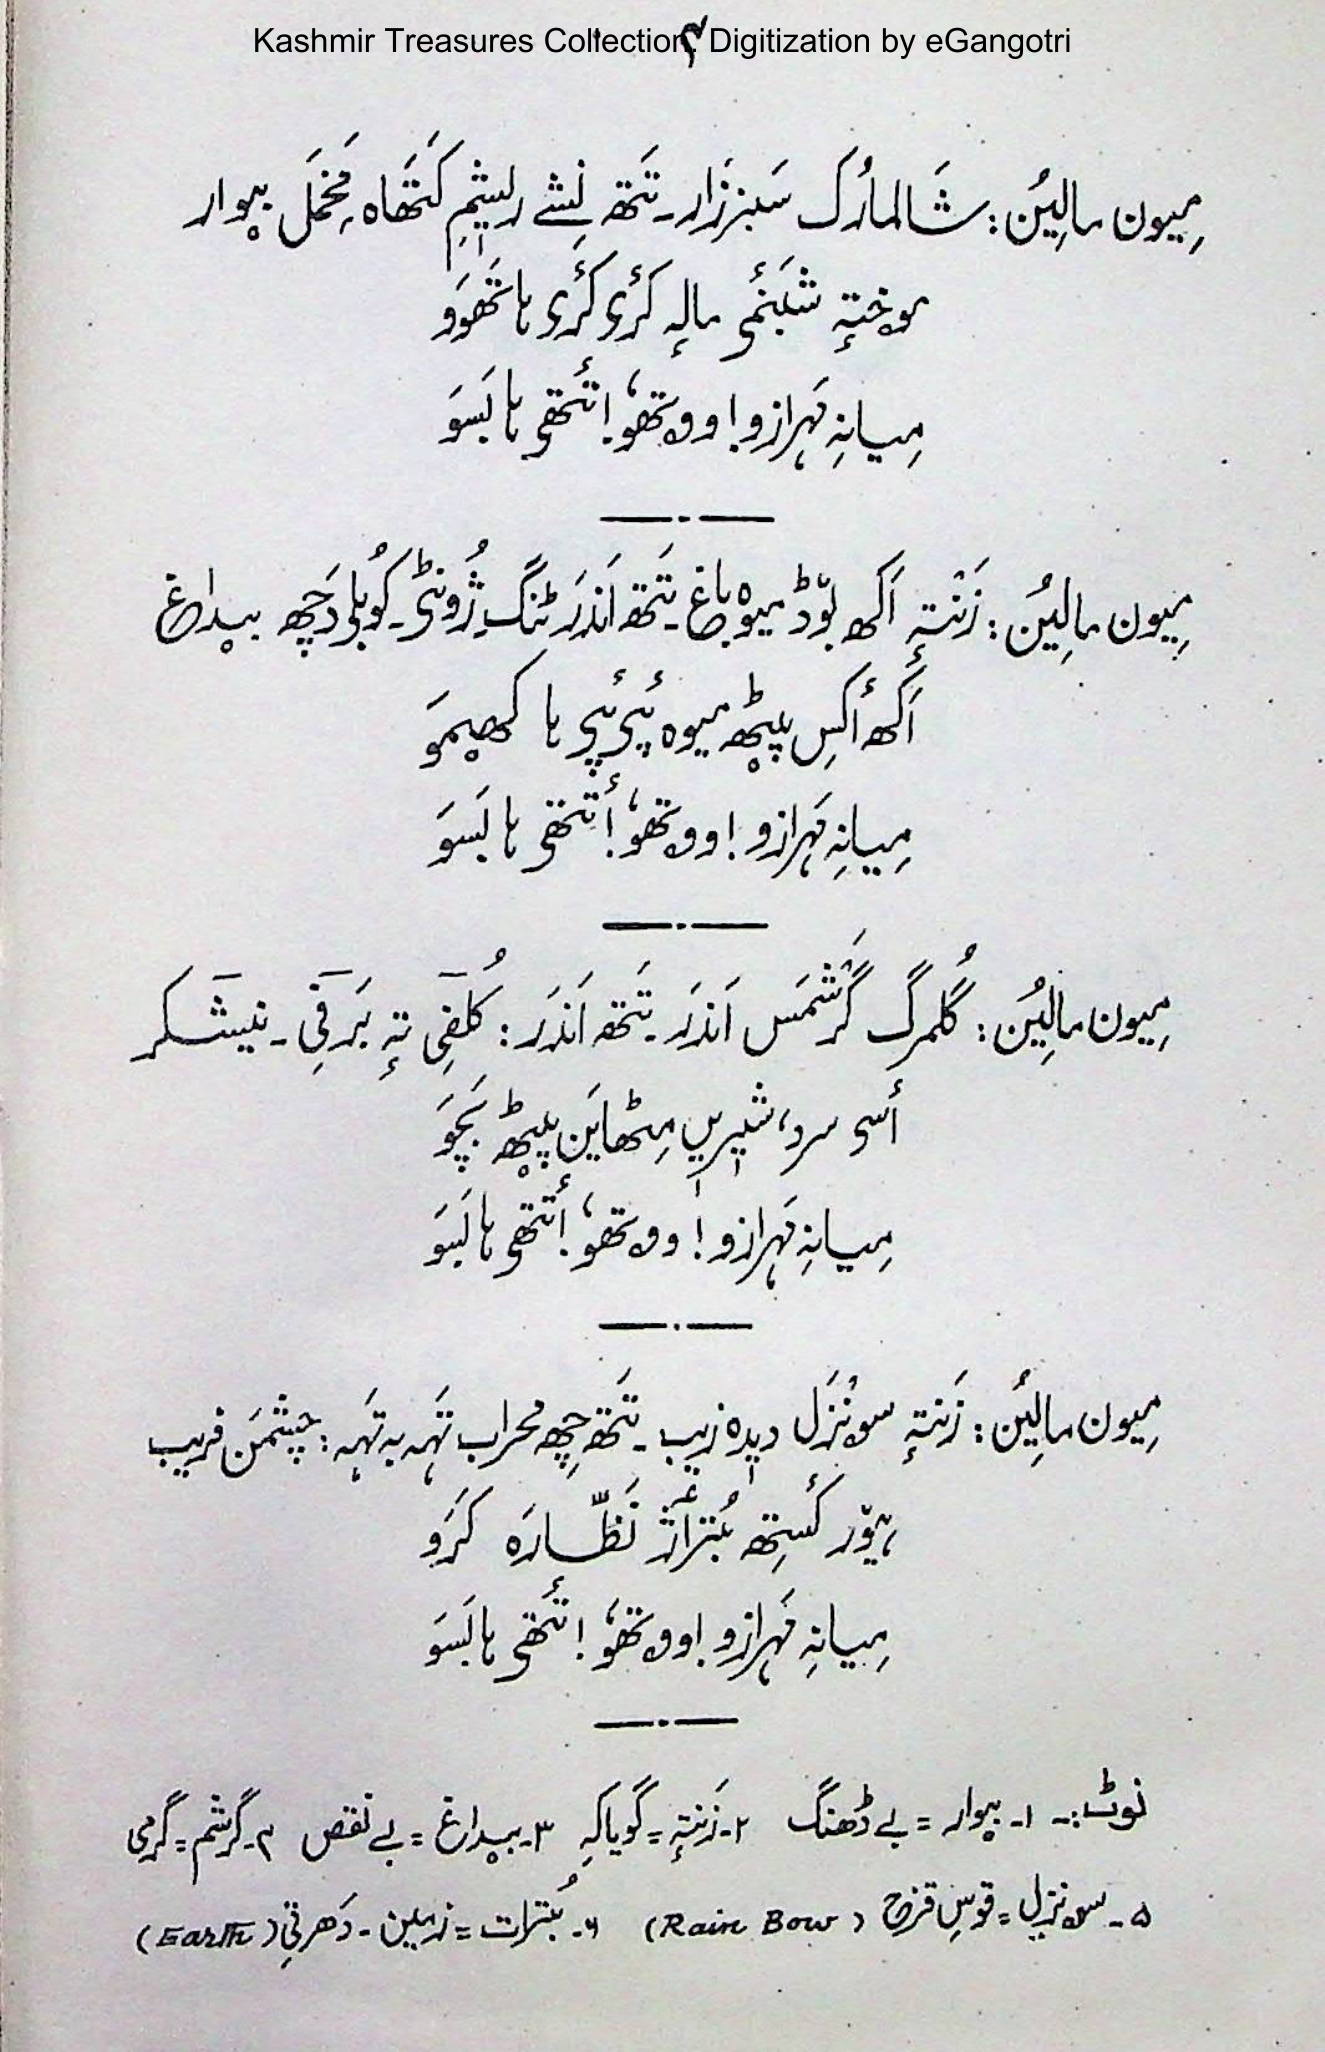 Kashmir Treasures Collection, Digitization by eGangotri
۴
میون مالیُن: شالمارُک سَبزَزار۔ تَتھ نِشے ریشِم کَتھاہ، مَخمَل بیوار
موختہٕ شبنمٔی مالہٕ کٔری کٔری ہا تَھوَو
میانِہ مَہرازو! ووتھوٗ! أتتھی ہا بَسَو
میون مالیُن: زَنتہٕ اَکھ بوٚڈ میوہ باغ۔ تَتھ اَندَر ٹنگ، ژُونٹھی۔ کُوبلی دَچھ بیداغ
اَکھ أکِس پیٹھ میوہ یٔی یٔی ہا کھیمَو
میانِہ مَہرازو! ووتھوٗ! أتتھی ہا بَسَو
میون مالیُن: گُلمرگ گرَشمَس اَندَر۔ تَتھ اَندَر: کُلفِی تہٕ بَرفِی۔ نیشکر
أسی سرد، شیریں مِٹھایَن پیٹھ بَچَو
میانِہ مَہرازو! ووتھوٗ! أتتھی ہا بَسَو
میون مالیُن: زَنتہٕ سونزَل دیدہ زیب۔ تَتھ چھِ محراب تَہہ بہ تَہہ: چشمَن فریب
ہیوٚر کھٔستِھ بُتراژ نَظّارَہ کَرَو
میانِہ مَہرازو! ووتھوٗ! أتتھی ہا بَسَو
نوٹ:۔ ۱۔ بیوار = بے ڈھنگ ۲۔ زَنتہٕ = گویاکہ ۳۔ بیداغ = بے نقص ۴۔ گرشم = گرمی
۵۔ سونزل = قوسِ قزح (Rain Bow) ۶۔ بُترات = زمین۔ دَھرتی (Earth)